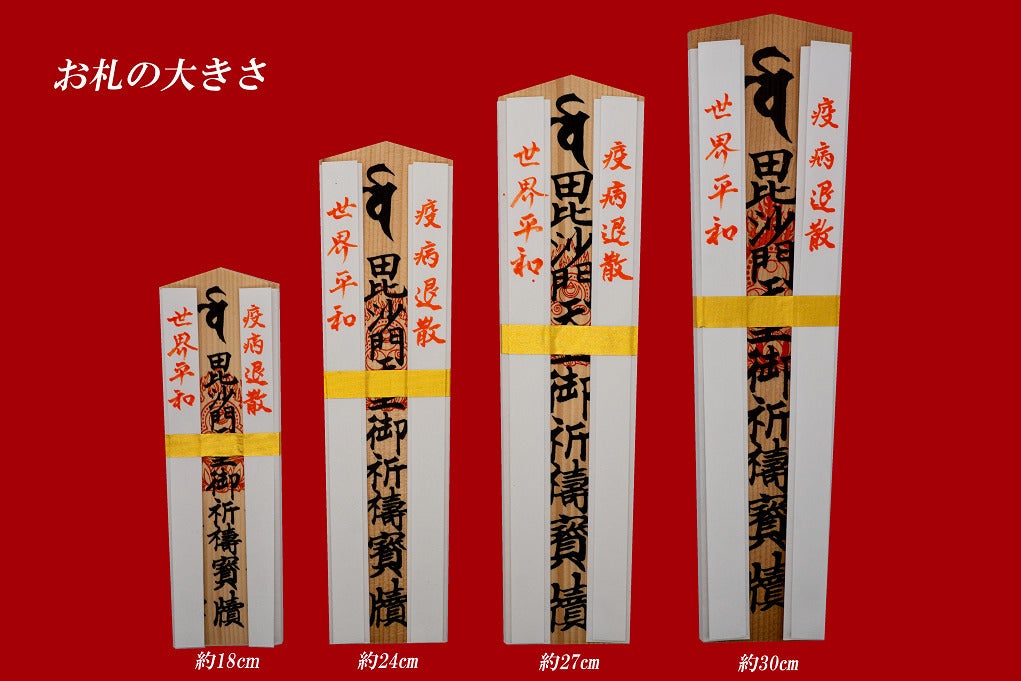 お札の大きさ
疫病退散
世界平和
毘沙門天王御祈祷寶牘
疫病退散
世界平和
毘沙門天王御祈禱寶牘
疫病退散
世界平和
毘沙門天王御祈禱寶牘
疫病退散
世界平和
毘沙門天王御祈禱寶牘
約18cm
約24cm
約27cm
約30cm